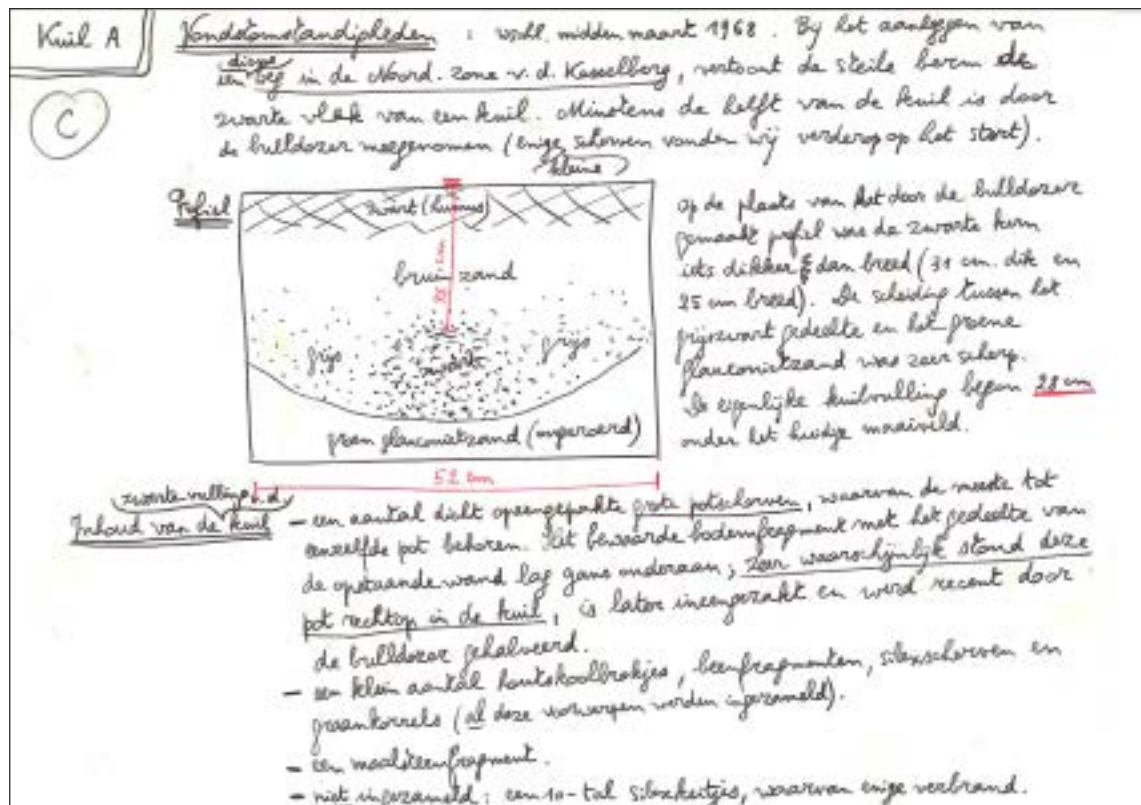 Kuil A
C
Vondstomstandigheden : wschl. midden maart 1968. By het aanleggen van
een diepe weg in de Noord. zone v. d. Kesselberg, vertoont de steile berm de
zwarte vlek van een kuil. Minstens de helft van de kuil is door
de bulldozer meegenomen (enige kleine scherven vonden wij verderop op het stort).
Profiel
zwart (humus)
bruin zand
28 cm
grijs
zwart
grijs
groen glauconietzand (ongeroerd)
52 cm
op de plaats van het door de bulldozer
gemaakt profiel was de zwarte kern
iets dikker dan breed (31 cm. dik en
25 cm breed). De scheiding tussen het
grijszwart gedeelte en het groene
glauconietzand was zeer scherp.
De eigenlijke kuilvulling begon 28 cm
onder het huidje maaiveld.
zwarte vulling v. d.
Inhoud van de kuil
– een aantal dicht opeengepakte grote potscherven, waarvan de meeste tot
eenzelfde pot behoren. Het bewaarde bodemfragment met het gedeelte van
de opstaande wand lag gans onderaan; zeer waarschijnlijk stond deze
pot rechtop in de kuil, is later ineengezakt en werd recent door
de bulldozer gehalveerd.
– een klein aantal houtskoolbrokjes, beenfragmenten, silexscherven en
graankorrels (al deze voorwerpen werden ingezameld).
– een maalsteenfragment.
– niet ingezameld: een 10-tal silexkeitjes, waarvan enige verbrand.